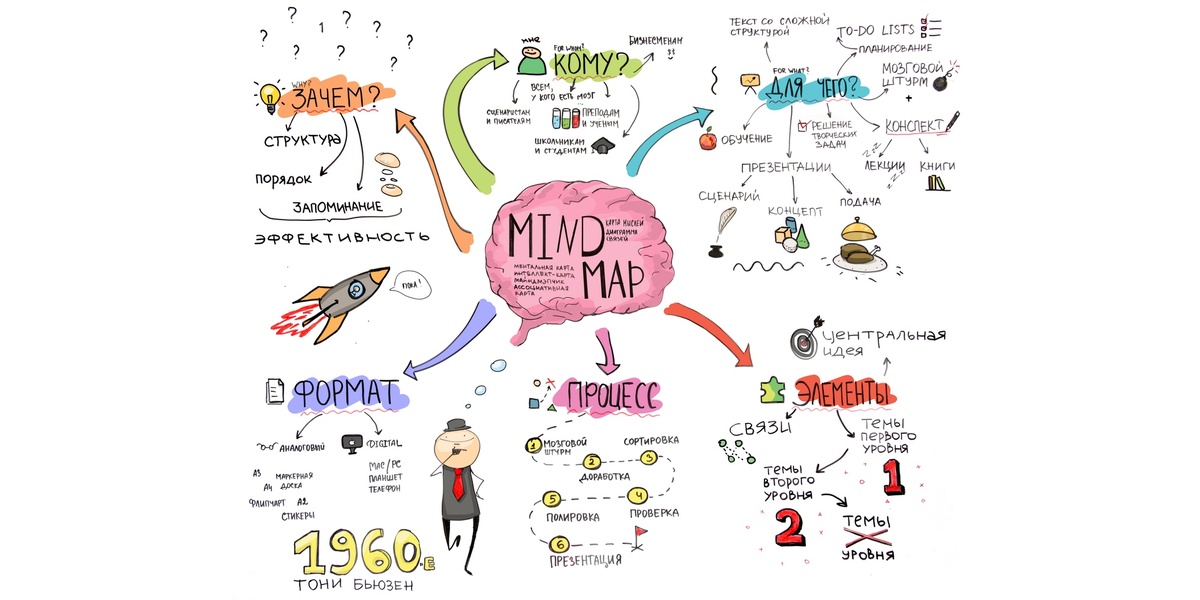 MIND
MAP
КАРТА МЫСЛЕЙ
ДИАГРАММА
СВЯЗЕЙ
МЕНТАЛЬНАЯ КАРТА
ИНТЕЛЛЕКТ-КАРТА
МАЙНДМЭПЧИК
АССОЦИАТИВНАЯ
КАРТА
? ? ? ? ? ? ? ?
1
WHY?
ЗАЧЕМ?
СТРУКТУРА
ПОРЯДОК
ЗАПОМИНАНИЕ
ЭФФЕКТИВНОСТЬ
ПОКА!
МНЕ
FOR WHOM?
КОМУ?
БИЗНЕСМЕНАМ
ВСЕМ,
У КОГО ЕСТЬ МОЗГ
СЦЕНАРИСТАМ
И ПИСАТЕЛЯМ
ПРЕПОДАМ
И УЧЕНЫМ
ШКОЛЬНИКАМ
И СТУДЕНТАМ
ТЕКСТ СО СЛОЖНОЙ
СТРУКТУРОЙ
TO-DO LISTS
ПЛАНИРОВАНИЕ
FOR WHAT?
ДЛЯ ЧЕГО?
МОЗГОВОЙ
ШТУРМ
+
КОНСПЕКТ
ZZZ
ЛЕКЦИИ
ZZZ
КНИГИ
ОБУЧЕНИЕ
РЕШЕНИЕ
ТВОРЧЕСКИХ
ЗАДАЧ
ПРЕЗЕНТАЦИИ
СЦЕНАРИЙ
КОНЦЕПТ
ПОДАЧА
ФОРМАТ
АНАЛОГОВЫЙ
DIGITAL
А3
МАРКЕРНАЯ
ДОСКА
А4
ФЛИПЧАРТ
А2
СТИКЕРЫ
MAC/PC
ПЛАНШЕТ
ТЕЛЕФОН
1960-Е
ТОНИ БЬЮЗЕН
ПРОЦЕСС
1
МОЗГОВОЙ
ШТУРМ
2
ДОРАБОТКА
3
СОРТИРОВКА
4
ПРОВЕРКА
5
ПОЛИРОВКА
6
ПРЕЗЕНТАЦИЯ
ЦЕНТРАЛЬНАЯ
ИДЕЯ
ЭЛЕМЕНТЫ
СВЯЗИ
ТЕМЫ
ПЕРВОГО
УРОВНЯ
1
ТЕМЫ
ВТОРОГО
УРОВНЯ
2
ТЕМЫ
X
УРОВНЯ